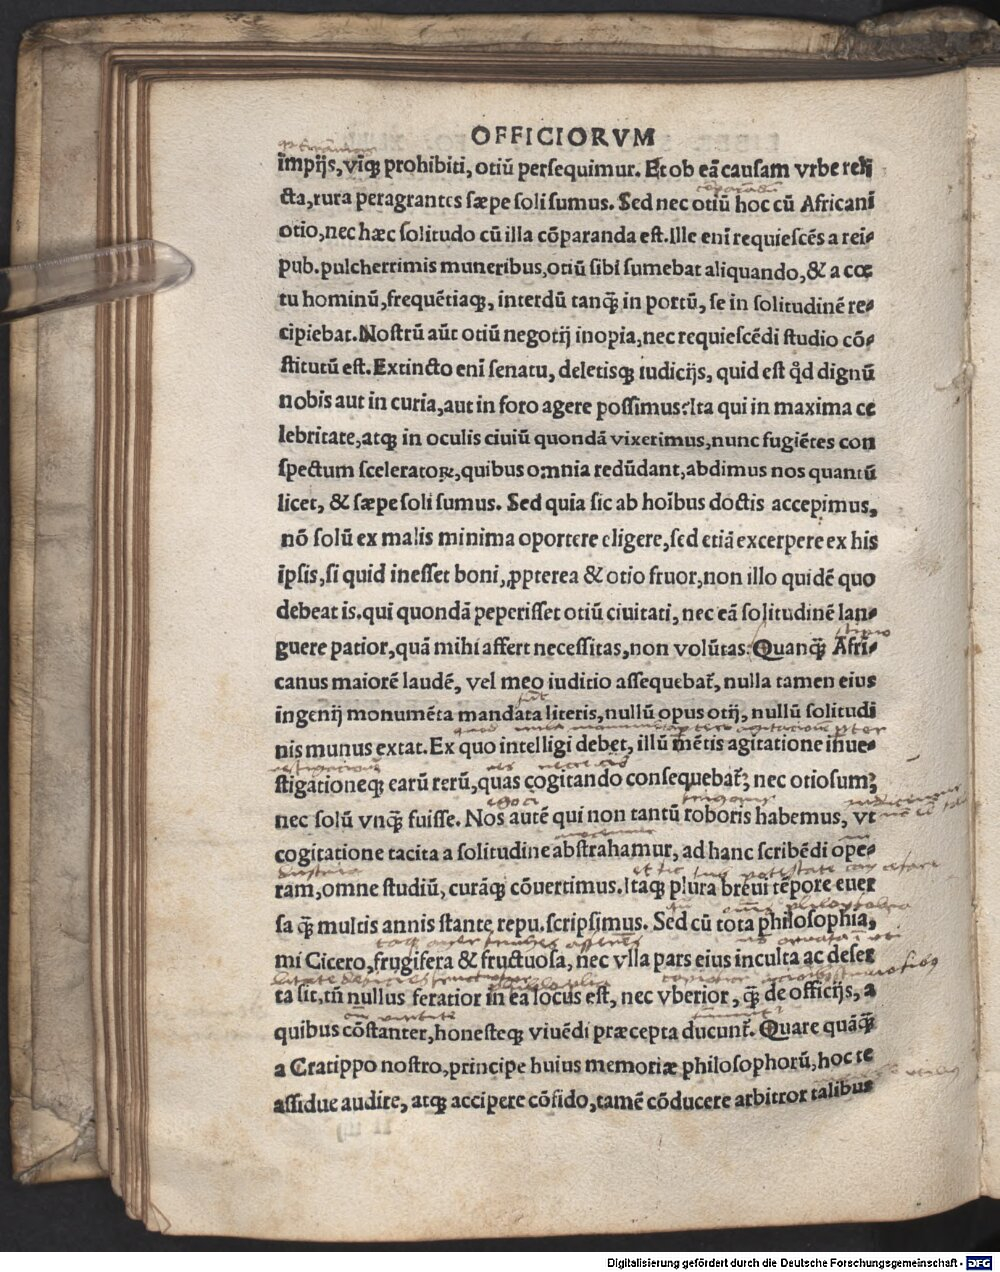 OFFICIORVM
impijs, viq̃ prohibiti, otiũ persequimur. Et ob eã causam vrbe reli
cta, rura peragrantes sæpe soli sumus. Sed nec otiũ hoc cũ Africani
otio, nec hæc solitudo cũ illa cõparanda est. Ille enĩ requiescẽs a rei-
pub. pulcherrimis muneribus, otiũ sibi sumebat aliquando, & a cœ
tu hominũ, frequẽtiaq̃, interdũ tanq̃ in portũ, se in solitudinẽ re-
cipiebat. Nostrũ aũt otiũ negotij inopia, nec requiescẽdi studio cõ-
stitutũ est. Extincto enĩ senatu, deletisq̃ iudicijs, quid est q̃d dignũ
nobis aut in curia, aut in foro agere possimus? Ita qui in maxima ce
lebritate, atq̃ in oculis ciuiũ quondã vixerimus, nunc fugiẽtes con
spectum sceleratoꝝ, quibus omnia redũdant, abdimus nos quantũ
licet, & sæpe soli sumus. Sed quia sic ab hoĩbus doctis accepimus,
nõ solũ ex malis minima oportere eligere, sed etiã excerpere ex his
ipsis, si quid inesset boni, ꝓpterea & otio fruor, non illo quidẽ quo
debeat is. qui quondã peperisset otiũ ciuitati, nec eã solitudinẽ lan-
guere patior, quã mihi affert necessitas, non volũtas. Quanq̃ Afri-
canus maiorẽ laudẽ, vel meo iuditio assequebat̃, nulla tamen eius
ingenij monumẽta mandata literis, nullũ opus otij, nullũ solitudi
nis munus extat. Ex quo intelligi debet, illũ mẽtis agitatione inue-
stigationeq̃ earũ rerũ, quas cogitando consequebat̃; nec otiosum;
nec solũ vnq̃ fuisse. Nos autẽ qui non tantũ roboris habemus, vt
cogitatione tacita a solitudine abstrahamur, ad hanc scribẽdi ope-
ram, omne studiũ, curãq̃ cõuertimus. Itaq̃ plura breui tẽpore euer
sa q̃ multis annis stante repu. scripsimus. Sed cũ tota philosophia,
mi Cicero, frugifera & fructuosa, nec vlla pars eius inculta ac deser
ta sit, tñ nullus feratior in ea locus est, nec vberior, q̃ de officijs, a
quibus cõstanter, honesteq̃ viuẽdi præcepta ducunt̃. Quare quãq̃
a Cratippo nostro, principe huius memoriæ philosophorũ, hoc te
assidue audire, atq̃ accipere cõfido, tamẽ cõducere arbitror talibus
Digitalisierung gefördert durch die Deutsche Forschungsgemeinschaft - DFG